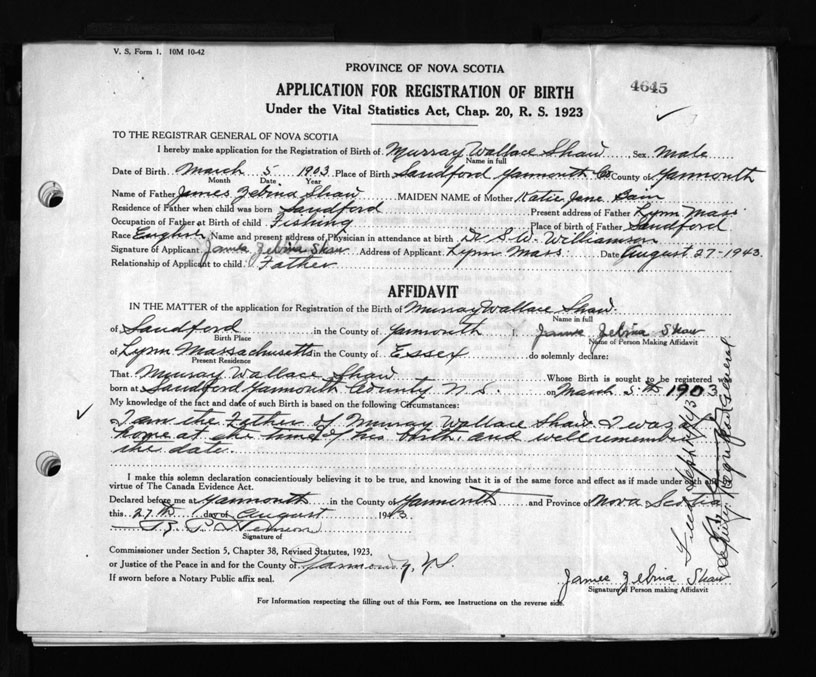 V. S. Form 1. 10M 10-42
PROVINCE OF NOVA SCOTIA
4645
APPLICATION FOR REGISTRATION OF BIRTH
Under the Vital Statistics Act, Chap. 20, R. S. 1923
TO THE REGISTRAR GENERAL OF NOVA SCOTIA
I hereby make application for the Registration of Birth of Murray Wallace Shaw, Sex Male
Name in full
Date of Birth March 5 1903 Place of Birth Sandford Yarmouth Co County of Yarmouth
Month Date Year
Name of Father James Zebina Shaw MAIDEN NAME of Mother Katie Jane Cain
Residence of Father when child was born Sandford Present address of Father Lynn Mass
Occupation of Father at Birth of child Fishing Place of birth of Father Sandford
Race English Name and present address of Physician in attendance at birth Dr S. W. Williamson
Signature of Applicant James Zebina Shaw Address of Applicant Lynn Mass. Date August 27-1943.
Relationship of Applicant to child Father
AFFIDAVIT
IN THE MATTER of the application for Registration of the Birth of Murray Wallace Shaw.
Name in full
of Sandford in the County of Yarmouth I, James Zebina Shaw
Birth Place Name of Person Making Affidavit
of Lynn Massachusetts in the County of Essex do solemnly declare:
Present Residence
That Murray Wallace Shaw Whose Birth is sought to be registered was
born at Sandford Yarmouth County N.S. on March 5th 1903
My knowledge of the fact and date of such Birth is based on the following Circumstances:
I am the Father of Murray Wallace Shaw. I was at
home at the time of his birth, and well remember
the date.
I make this solemn declaration conscientiously believing it to be true, and knowing that it is of the same force and effect as if made under oath
virtue of The Canada Evidence Act.
Declared before me at Yarmouth in the County of Yarmouth and Province of Nova Scotia
this 27th day of August 1943.
Signature of
Commissioner under Section 5, Chapter 38, Revised Statutes, 1923,
or Justice of the Peace in and for the County of Yarmouth, N.S.
If sworn before a Notary Public affix seal.
James Zebina Shaw
Signature of Person making Affidavit
For Information respecting the filling out of this Form, see Instructions on the reverse side.
Deputy Registrar General